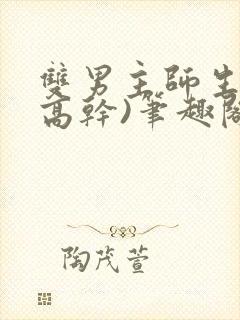 雙男主師生
高幹)筆趣閣
陶茂萱